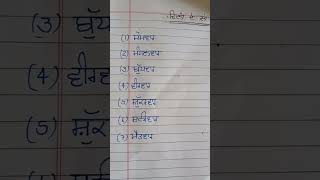 ਦਿਨਾਂ ਦੇ ਨਾਂ
(1) ਸੋਮਵਾਰ
(2) ਮੰਗਲਵਾਰ
(3) ਬੁੱਧਵਾਰ
(4) ਵੀਰਵਾਰ
(5) ਸ਼ੁੱਕਰਵਾਰ
(6) ਸ਼ਨੀਵਾਰ
(7) ਐਤਵਾਰ
(3)
(4)
(5)